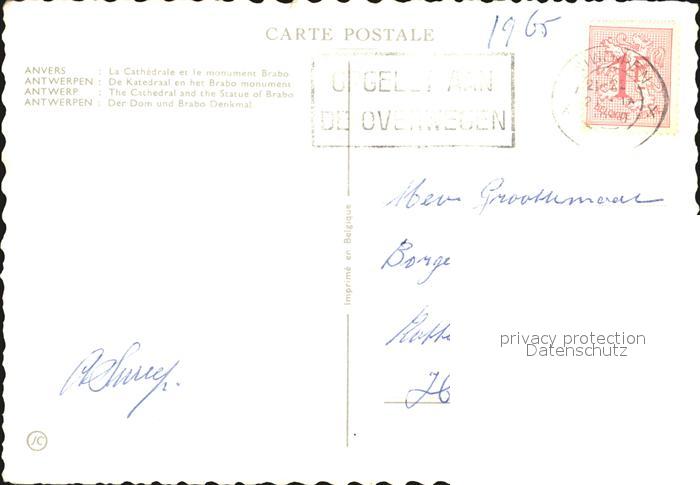 CARTE POSTALE
1965
ANVERS : La Cathédrale et le monument Brabo
ANTWERPEN : De Katedraal en het Brabo monument
ANTWERP : The Cathedral and the Statue of Brabo
ANTWERPEN : Der Dom und Brabo Denkmal
OPGELET AAN
DE OVERWEGEN
ANTWERPEN
1F
Imprimé en Belgique
Mevr Groothemaat
Borge
privacy protection
Datenschutz
JC